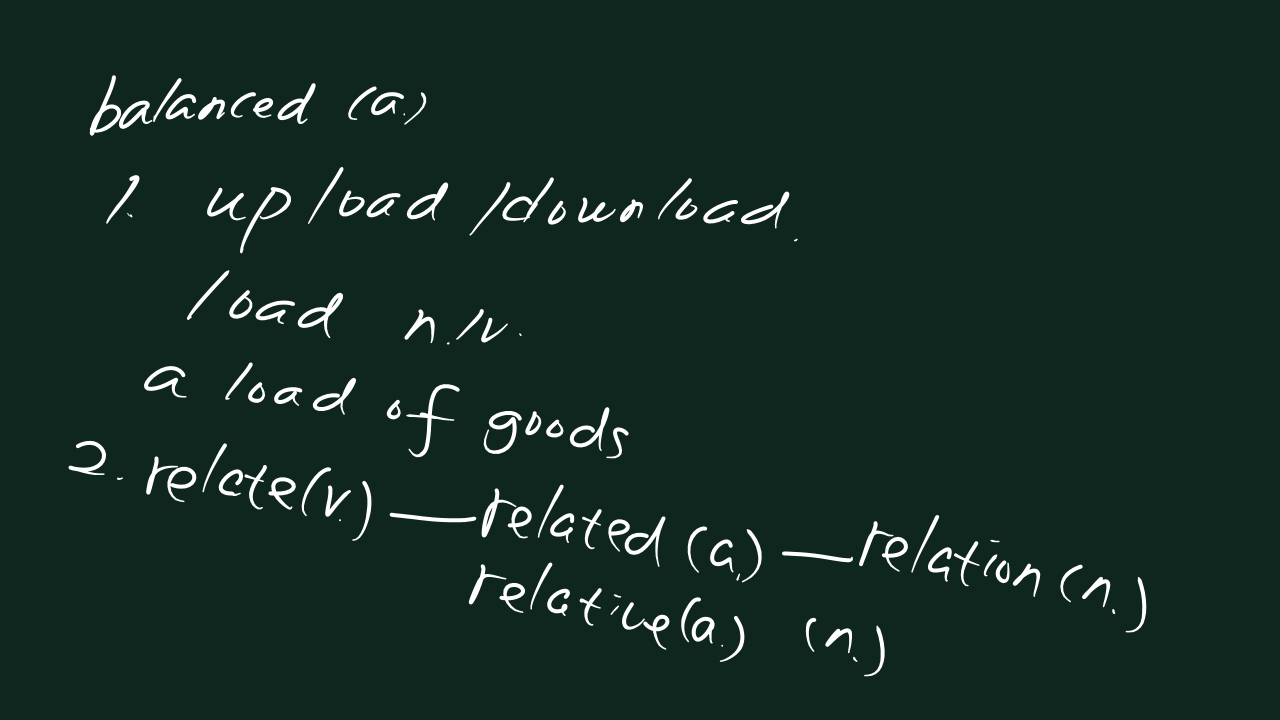 balanced (a.)
1. upload /download.
load n./v.
a load of goods
2. relate(v.) — related (a.) — relation (n.)
relative(a.) (n.)